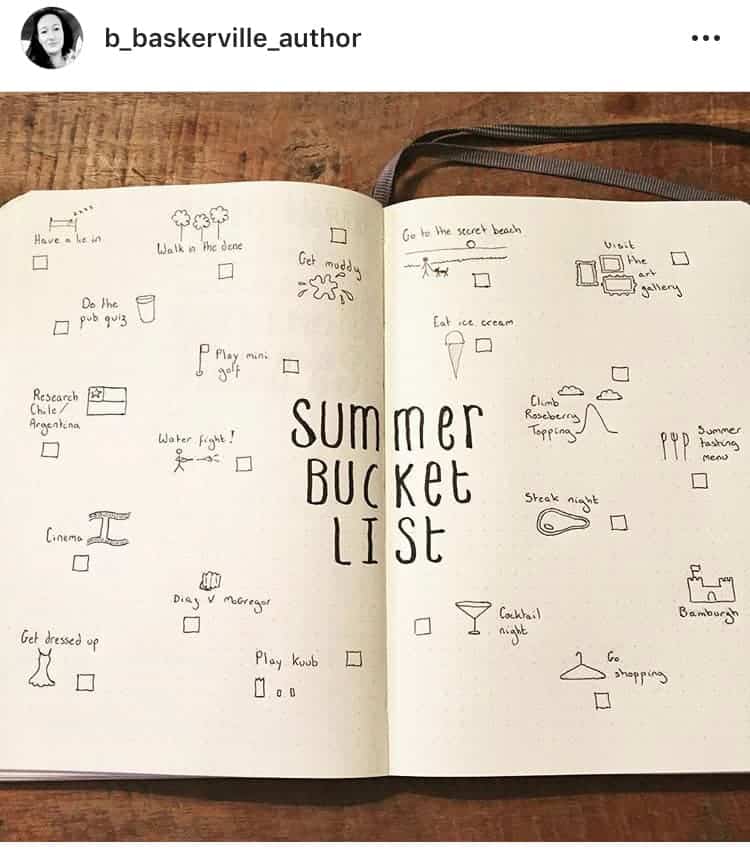 b_baskerville_author
zzzz
Have a lie in
Walk in the dene
Get muddy
Do the
pub quiz
Play mini
golf
Research
Chile/
Argentina
Water fight!
Cinema
Diaz V McGregor
Get dressed up
Play Kubb
SUMMER
BUCKET
LIST
Go to the secret beach
Visit
the
art
gallery
Eat ice cream
Climb
Roseberry
Topping
Summer
tasting
menu
Steak night
Bamburgh
Cocktail
night
Go
shopping